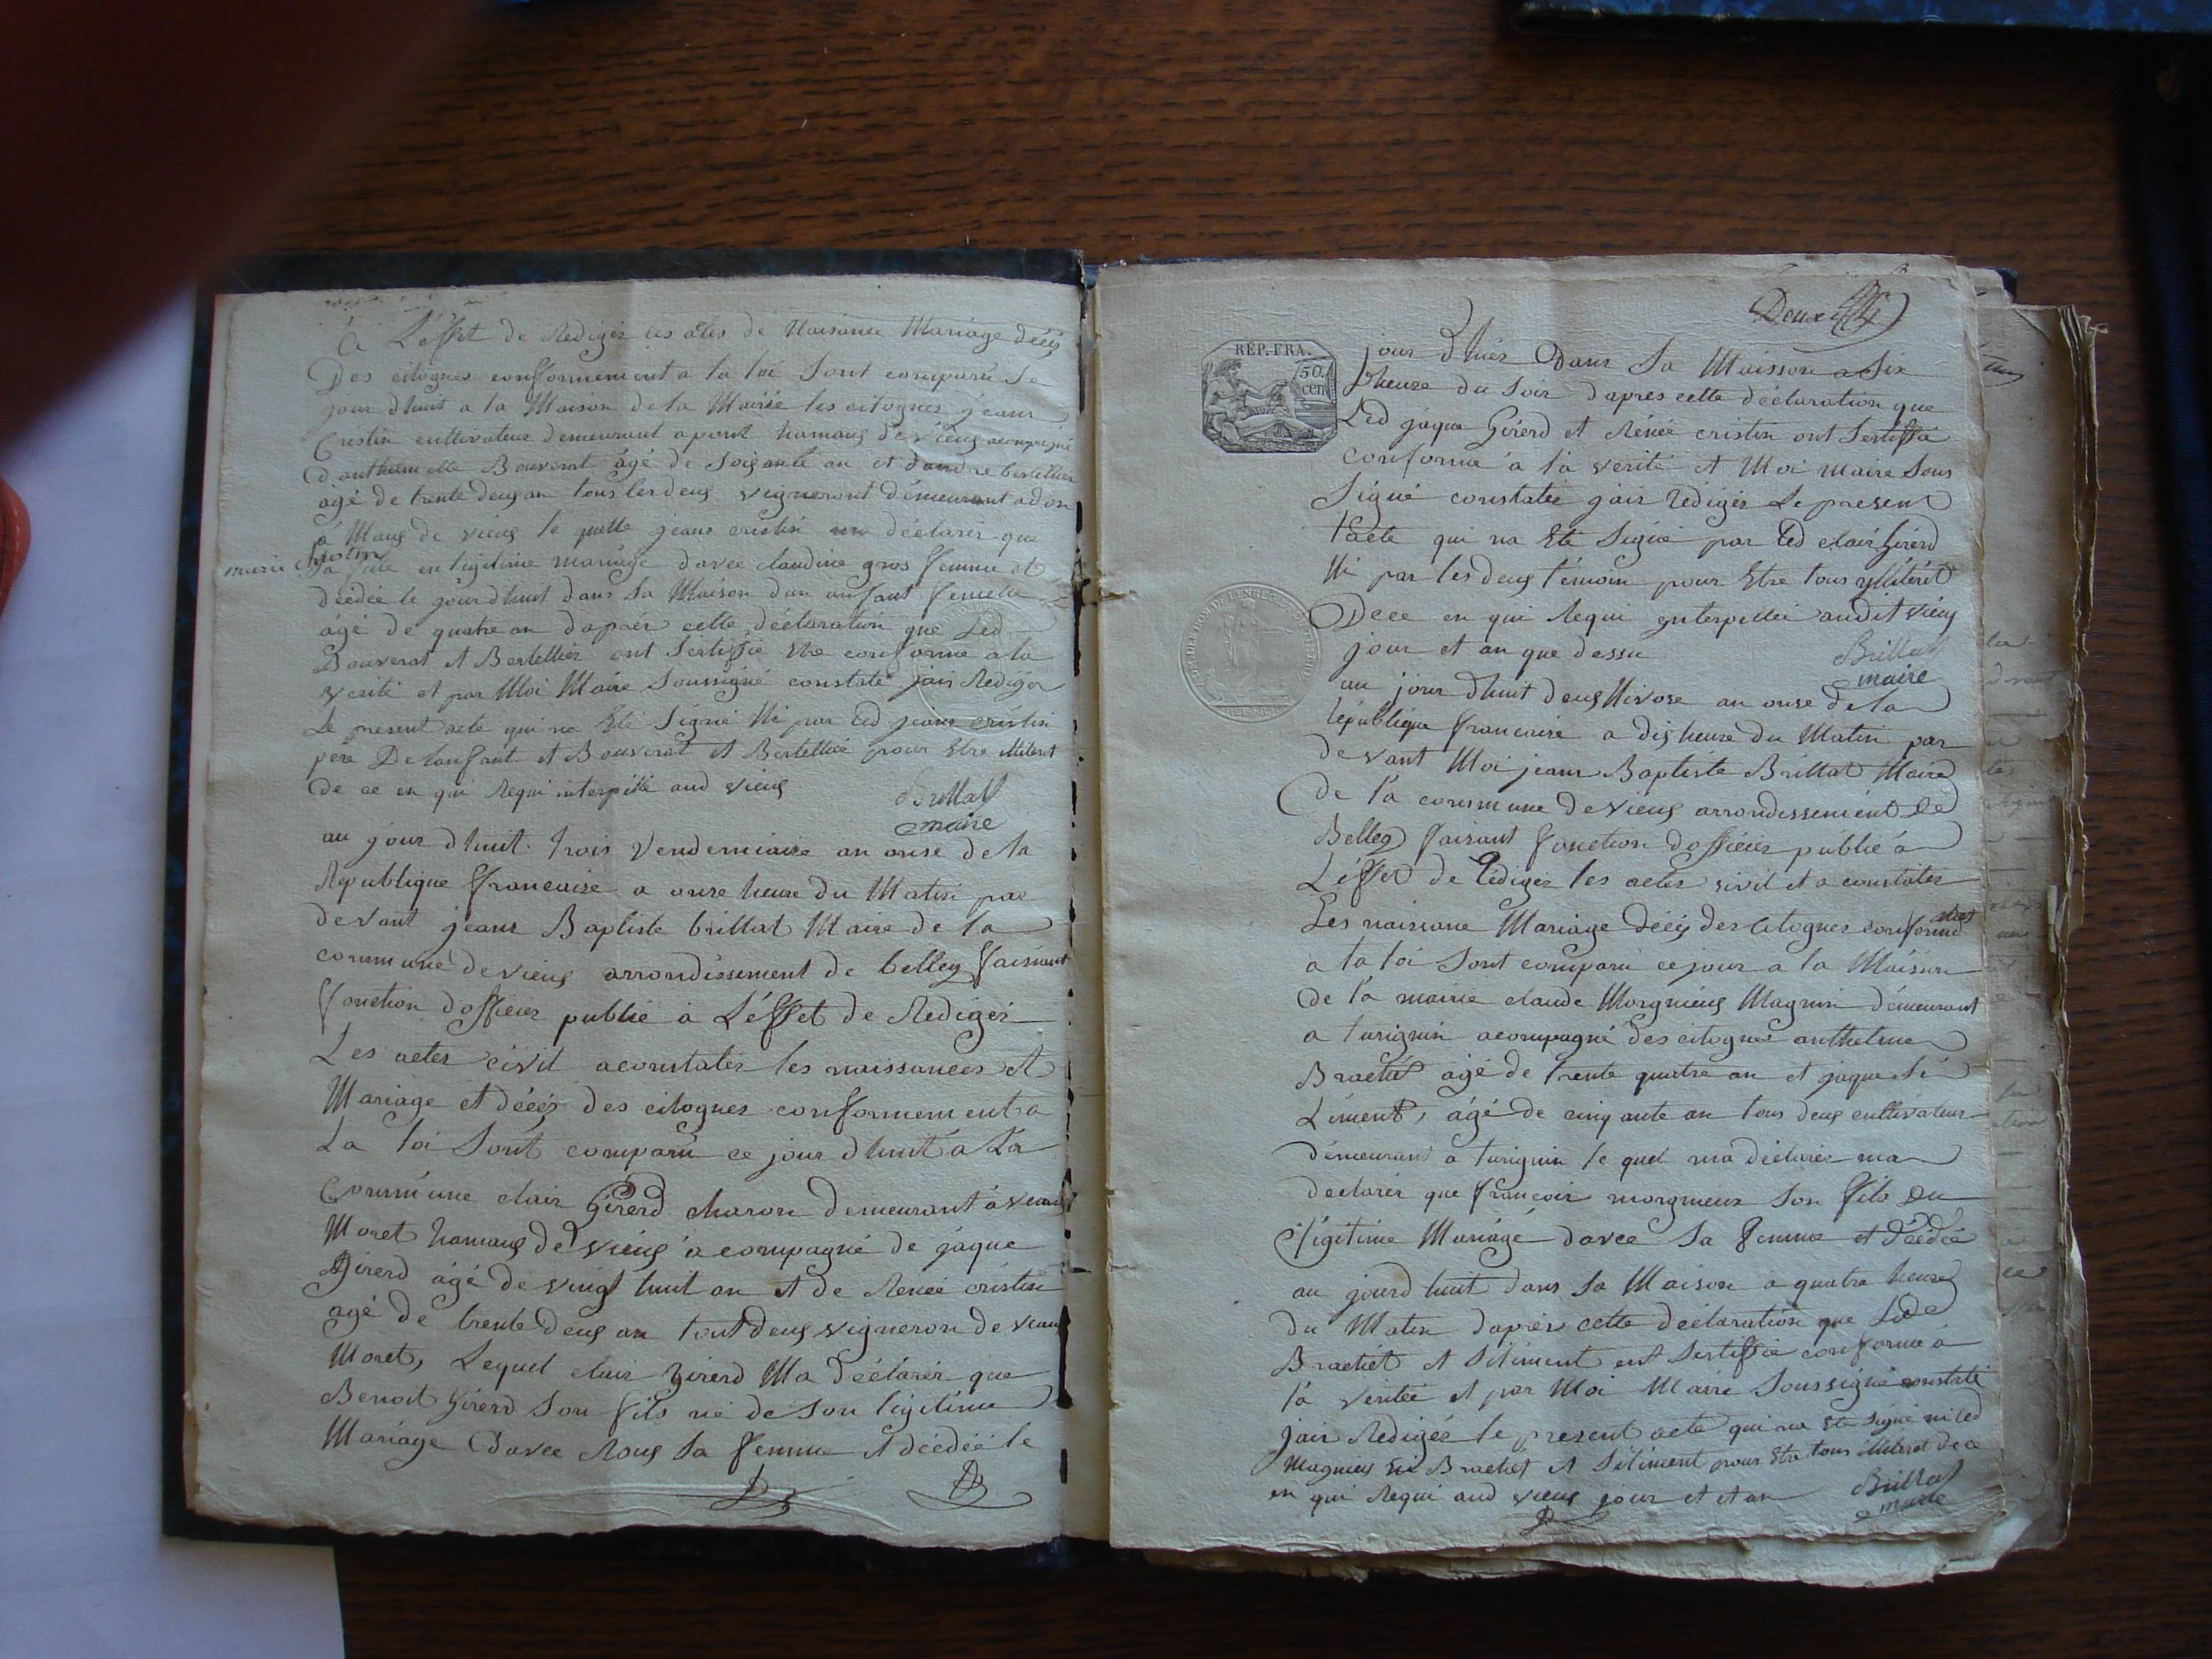 à L'effet de Redigér les actes de Naisance Mariage décés
Des citognes conformement a la loi Sont comparu Ce
jour dhuit a la Maison de la Mairie les citognes jeans
Cristin cultivateur demeurant a pont hamaug de vieug acompagné
d'anthelmette Bouverat âgé de Soisante an et dandre bertellier
âgé de trente deug an tous les deug vigneront démeurant a don
a Maug de vieug le quelle jeans cristin ma déclarér que
marie christin
Sa fille en légitime mariage davec claudine gros femme et
décédée le jour dhuit dans Sa Maison dun anfant femelle
âgé de quatre an daprér cette déclaration que Led
Bouverat et Bertelliér ont Sertiffie Etre conforme a la
verité et par Moi Maire Soussigné constaté jair Rediger
Le present acte qui na Eté Signé Ni par Led jeans cristin
pere De lanfant et Bouverat et Bertelliér pour Etre illiteret
de ce en qui Requi interpillé aud vieug
Brillat
maire
au jour dhuit trois Vendemiaire an onse de la
Republique francaise a onse heure du Matin par
devant jeans Baptiste brillat Maire de la
commune de vieug arrondissement de belley faisiant
fonction dofficiér public à L'éffet de Redigér
Les actes civil a constatér les naissances et
Mariage et décés des citognes conformement a
La loi Sont comparu ce jour dhuit a La
Commune clair Girerd charon demeurant à veau
Moret hamaug de vieug acompagné de jaque
Girerd âgé de vingt huit an et de Renée cristin
âgé de trente deug an tout deug vigneron de veau
Moret, Lequel clair Girerd Ma déclarér que
Benoit Girerd Son fils né de Son légitime
Mariage Davec Roug Sa femme et décédée le
Deux
RÉP. FRA.
50.
cen
jour dhuér Dans Sa Maisson a Six
heure du Soir daprés cette déclaration que
Led jaque Girerd et Rénée cristin ont Sertiffié
conforme a la verité et Moi maire Sous
Signé constatée jair Rédigér Le present
tacte qui na Eté Signé par Led clair Girerd
Ni par les deug témoin pour Etre tous ylliterét
Dece en qui Requi ynterpellée audit vieug
jour et an que dessu
Brillat
maire
au jour dhuit deug Nivose an onse de la
republique francaise a dig heure du Matin par
devant Moi jeans Baptiste Brillat Maire
De la commune de vieug arrondissement De
Belley faisant fonction dofficiér public à
L'éffet de Rédigér les actes sivil et a constatér
Les naissane Mariage décés des Citognes conformé
a la loi Sont comparu ce jour a la Maisson
de la mairie claude Morgnieug Magnin démeurant
a turignin acompagné des citogne anthelme
Brachet âgé de trente quatre an et jaque Si
Liment, âgé de cinq ante an tous deug cultivateur
démeurant a turignin le quel ma déclarée ma
declarér que francoir morgnieux Son fils De
légitime Mariage davec Sa femme et décédée
au jourd huit dans Sa Maison a quatre heure
du Matin daprés cette déclaration que Lede
Brachét et Siliment ont Sertiffié conforme a
la veritée et par Moi Maire Soussigné constaté
jair Redigér le present acte qui na Eté Signé ni Led
Magnieug Ni Brachet et Siliment pour Etre tous illiteret de ce
en qui Requi aud vieug jour et et an
Brillat
maire